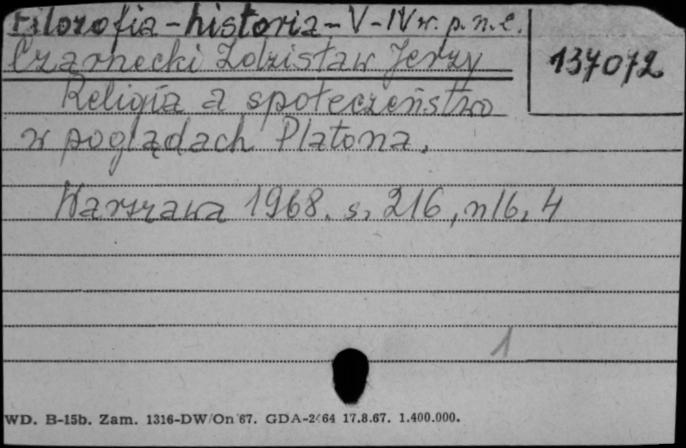 Filozofia-historia-V-IV w. p. n. e.
137072
Czarnecki Zdzisław Jerzy
Religia a społeczeństwo
w poglądach Platona.
Warszawa 1968. s. 216, nlb. 4
1
WD. B-15b. Zam. 1316-DW/On 67. GDA-2464 17.8.67. 1.400.000.